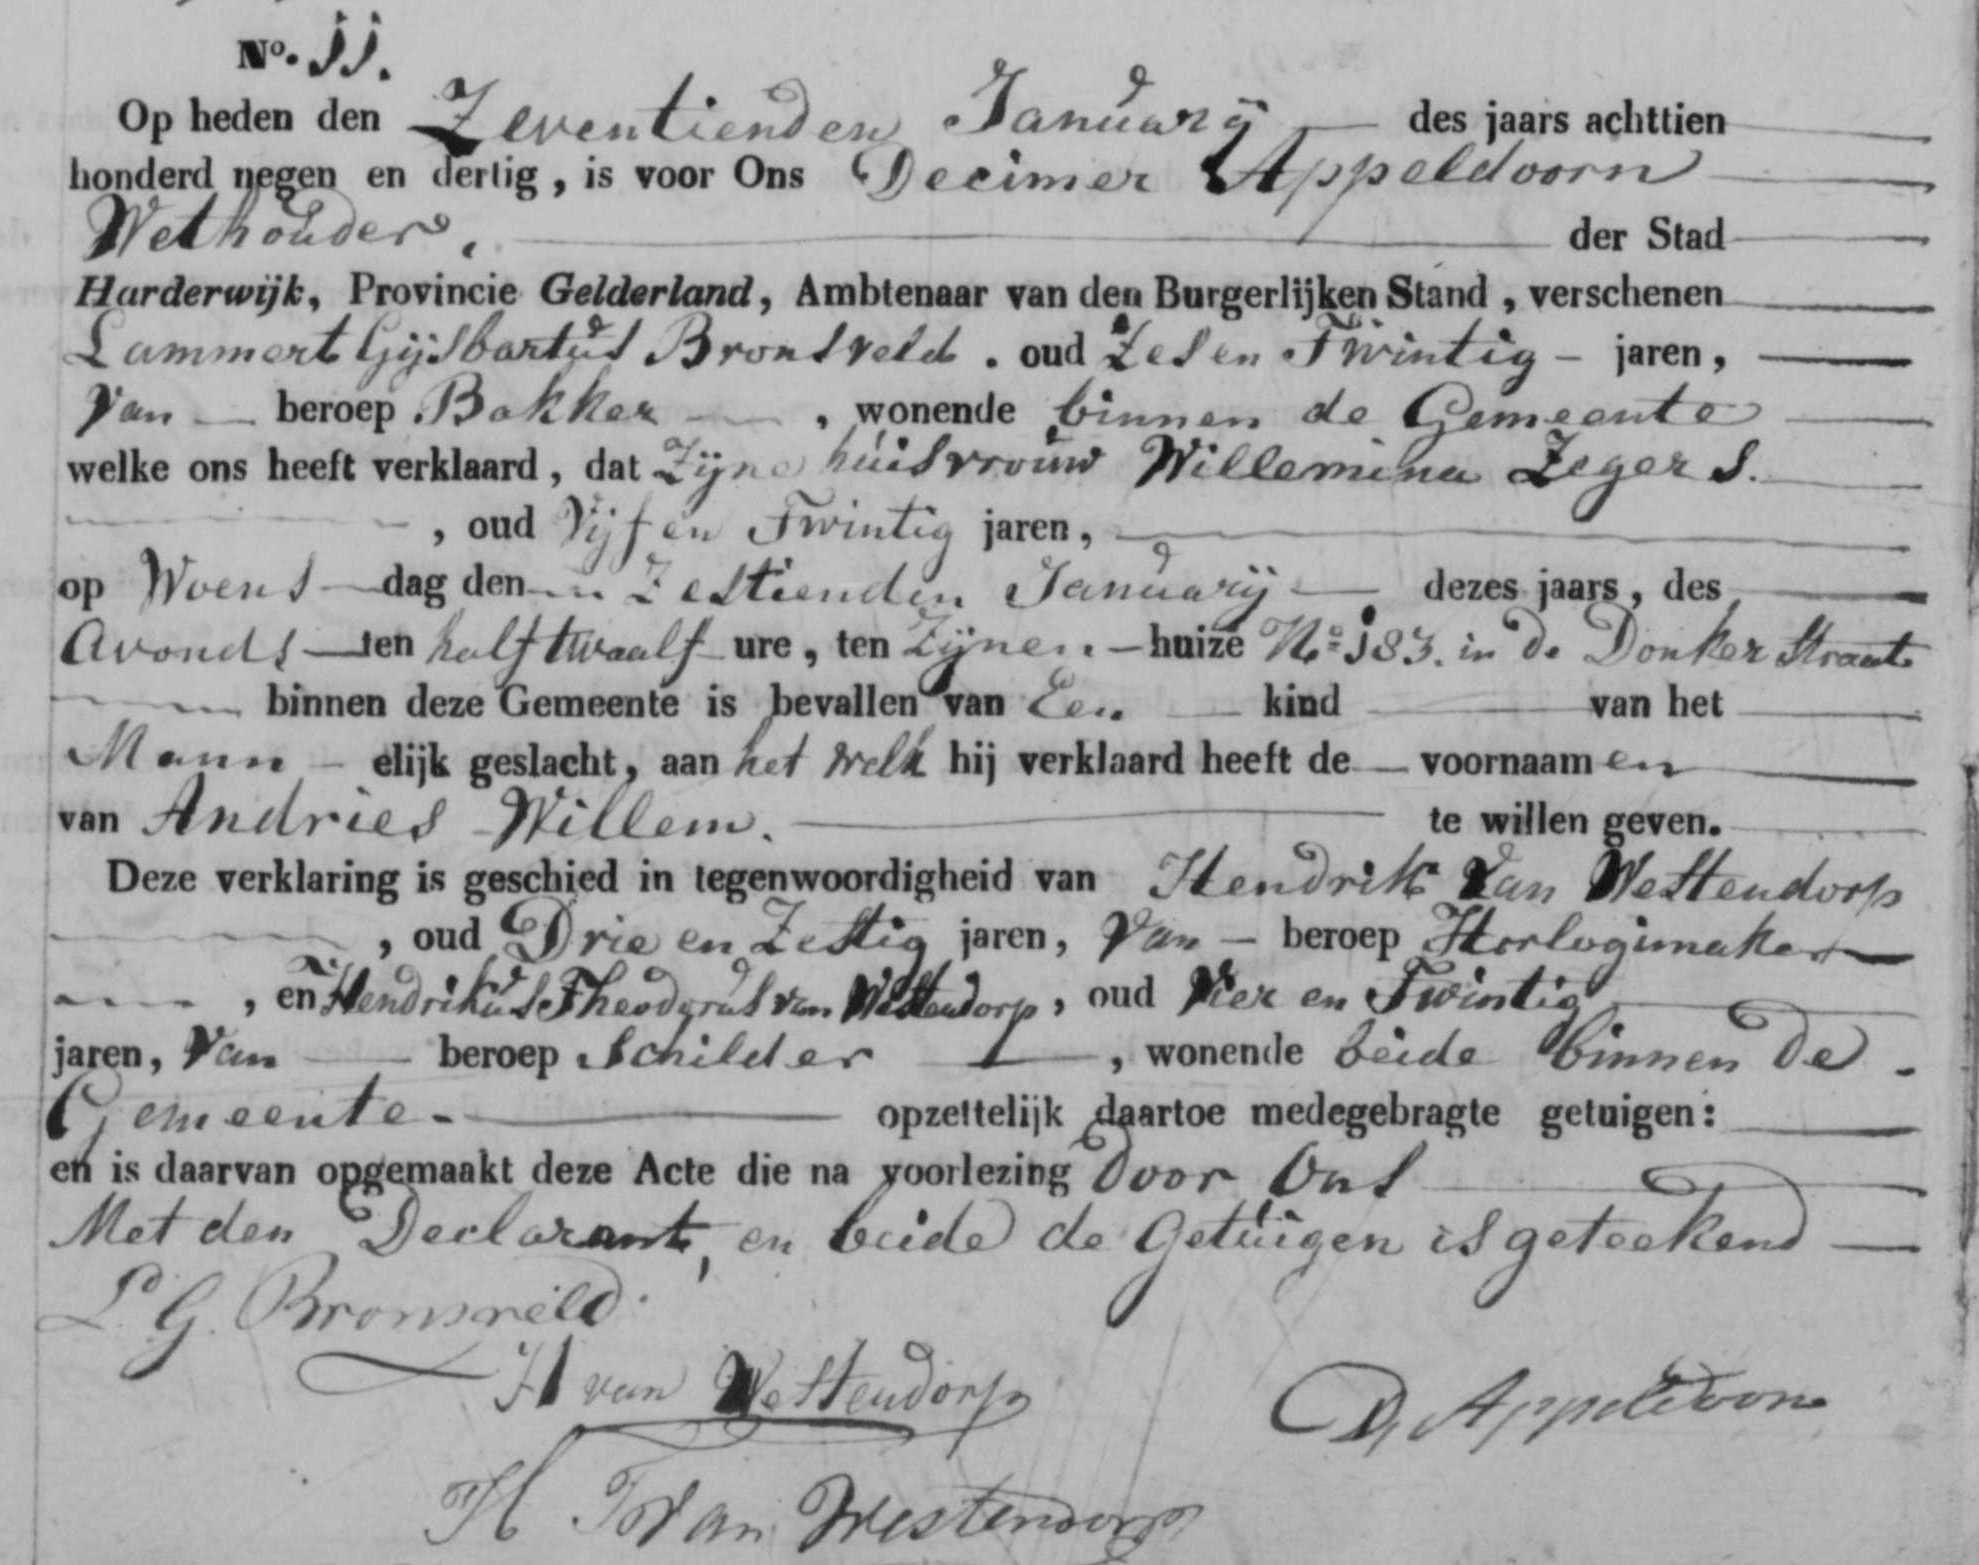 No. 11.
Op heden den Zeventienden Januarij des jaars achttien
honderd negen en dertig, is voor Ons Decimer Appeldoorn
Wethouder, der Stad
Harderwijk, Provincie Gelderland, Ambtenaar van den Burgerlijken Stand, verschenen
Lammert Gijsbartus Bronsveld. oud Zes en Twintig jaren,
Van beroep Bakker, wonende binnen de Gemeente
welke ons heeft verklaard, dat Zijne huisvrouw Willemina Zegers.
, oud Vijf en Twintig jaren,
op Woensdag den Zestienden Januarij dezes jaars, des
Avonds ten half twaalf ure, ten Zijnen huize No 183. in de Donker Straat
binnen deze Gemeente is bevallen van Een kind van het
Mannelijk geslacht, aan het welk hij verklaard heeft de voornaamen
van Andries Willem. te willen geven.
Deze verklaring is geschied in tegenwoordigheid van Hendrik Van Westendorp
, oud Drie en Zestig jaren, Van beroep Horlogimaker
, en Hendrikus Theodorus van Westendorp, oud Vier en Twintig
jaren, Van beroep Schilder, wonende beide binnen De
Gemeente opzettelijk daartoe medegebragte getuigen:
en is daarvan opgemaakt deze Acte die na voorlezing Door Ons
Met den Declarant, en beide de Getuigen is geteekend
L. G. Bronsveld.
H van Westendorp
D, Appeldoorn
H T Van Westendorp